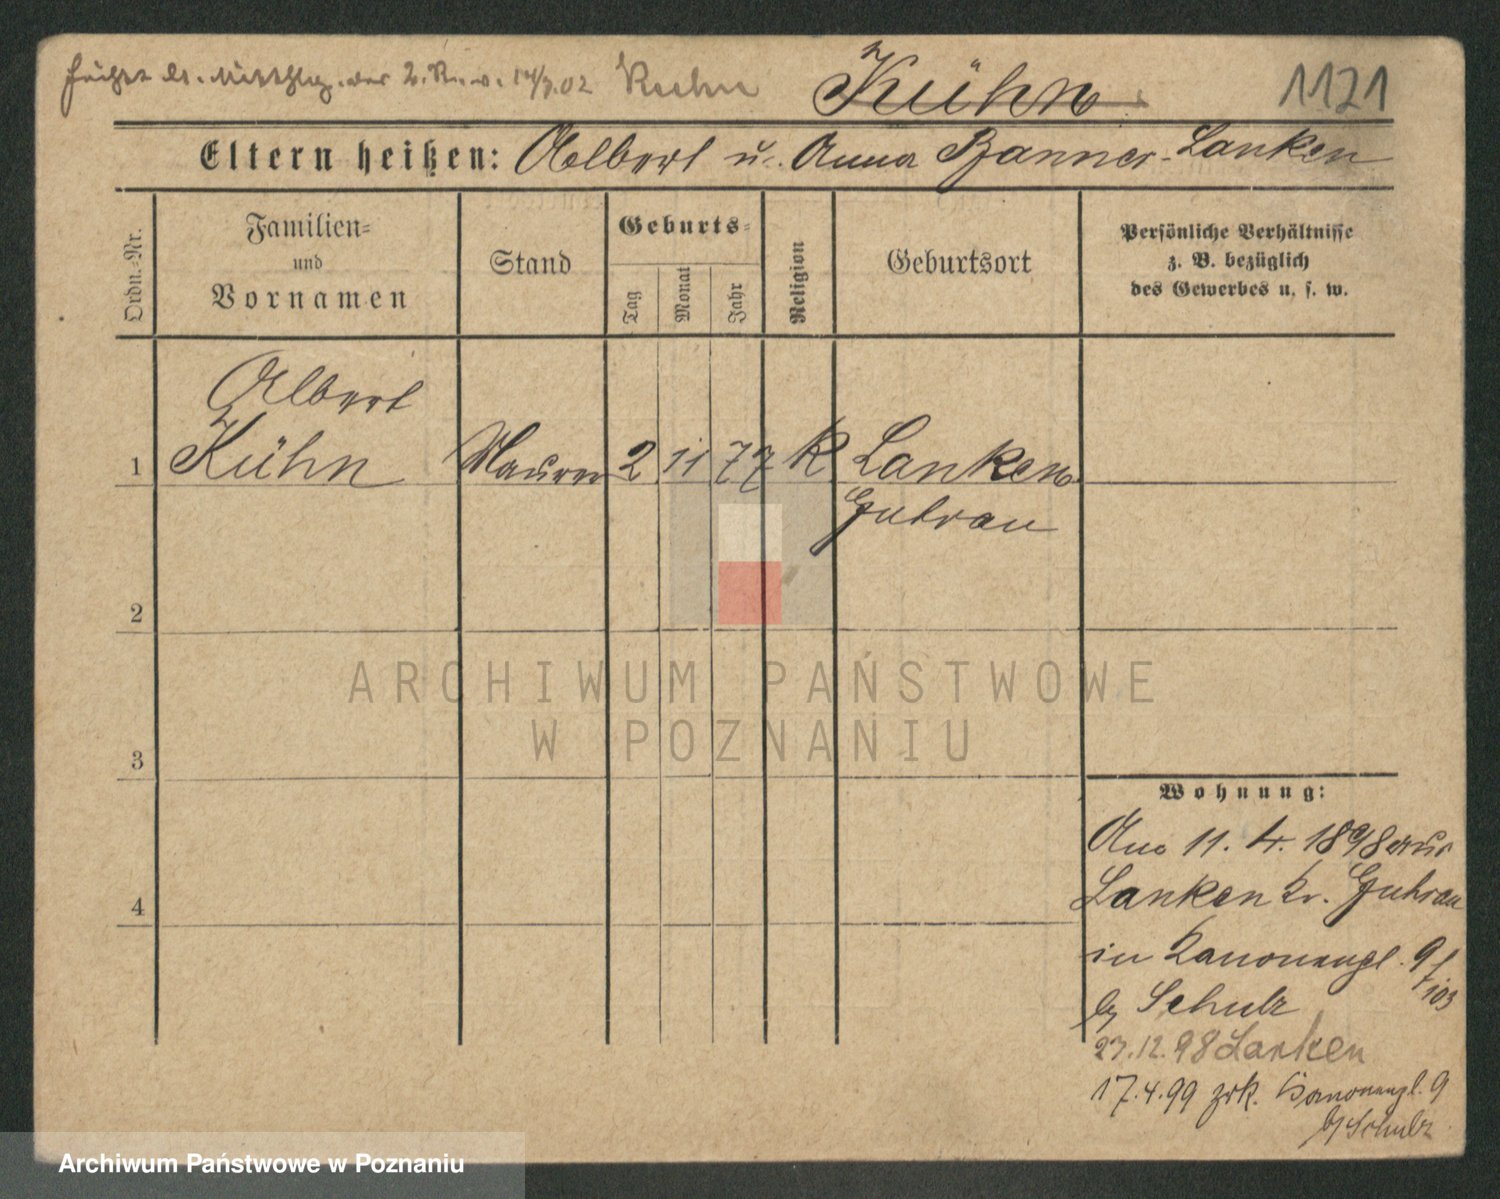 Kuehn Kühn 1121
Eltern heißen: Albert u. Anna Banner-Lanken
Ordn.-Nr.
Familien-
und
Vornamen
Stand
Geburts-
Tag
Monat
Jahr
Religion
Geburtsort
Persönliche Verhältnisse
z. B. bezüglich
des Gewerbes u. s. w.
Albert
1 Kühn Maurer 2 11 77 k Lanken
Guhrau
2
3
4
ARCHIWUM PAŃSTWOWE
W POZNANIU
Wohnung:
Am 11. 4. 1898 aus
Lanken Kr. Guhrau
in Kanonenpl. 9
I/103
b/ Schulz
27.12.98 Lanken
17.4.99 zrk. Kanonenpl. 9
b/ Schulz
Archiwum Państwowe w Poznaniu